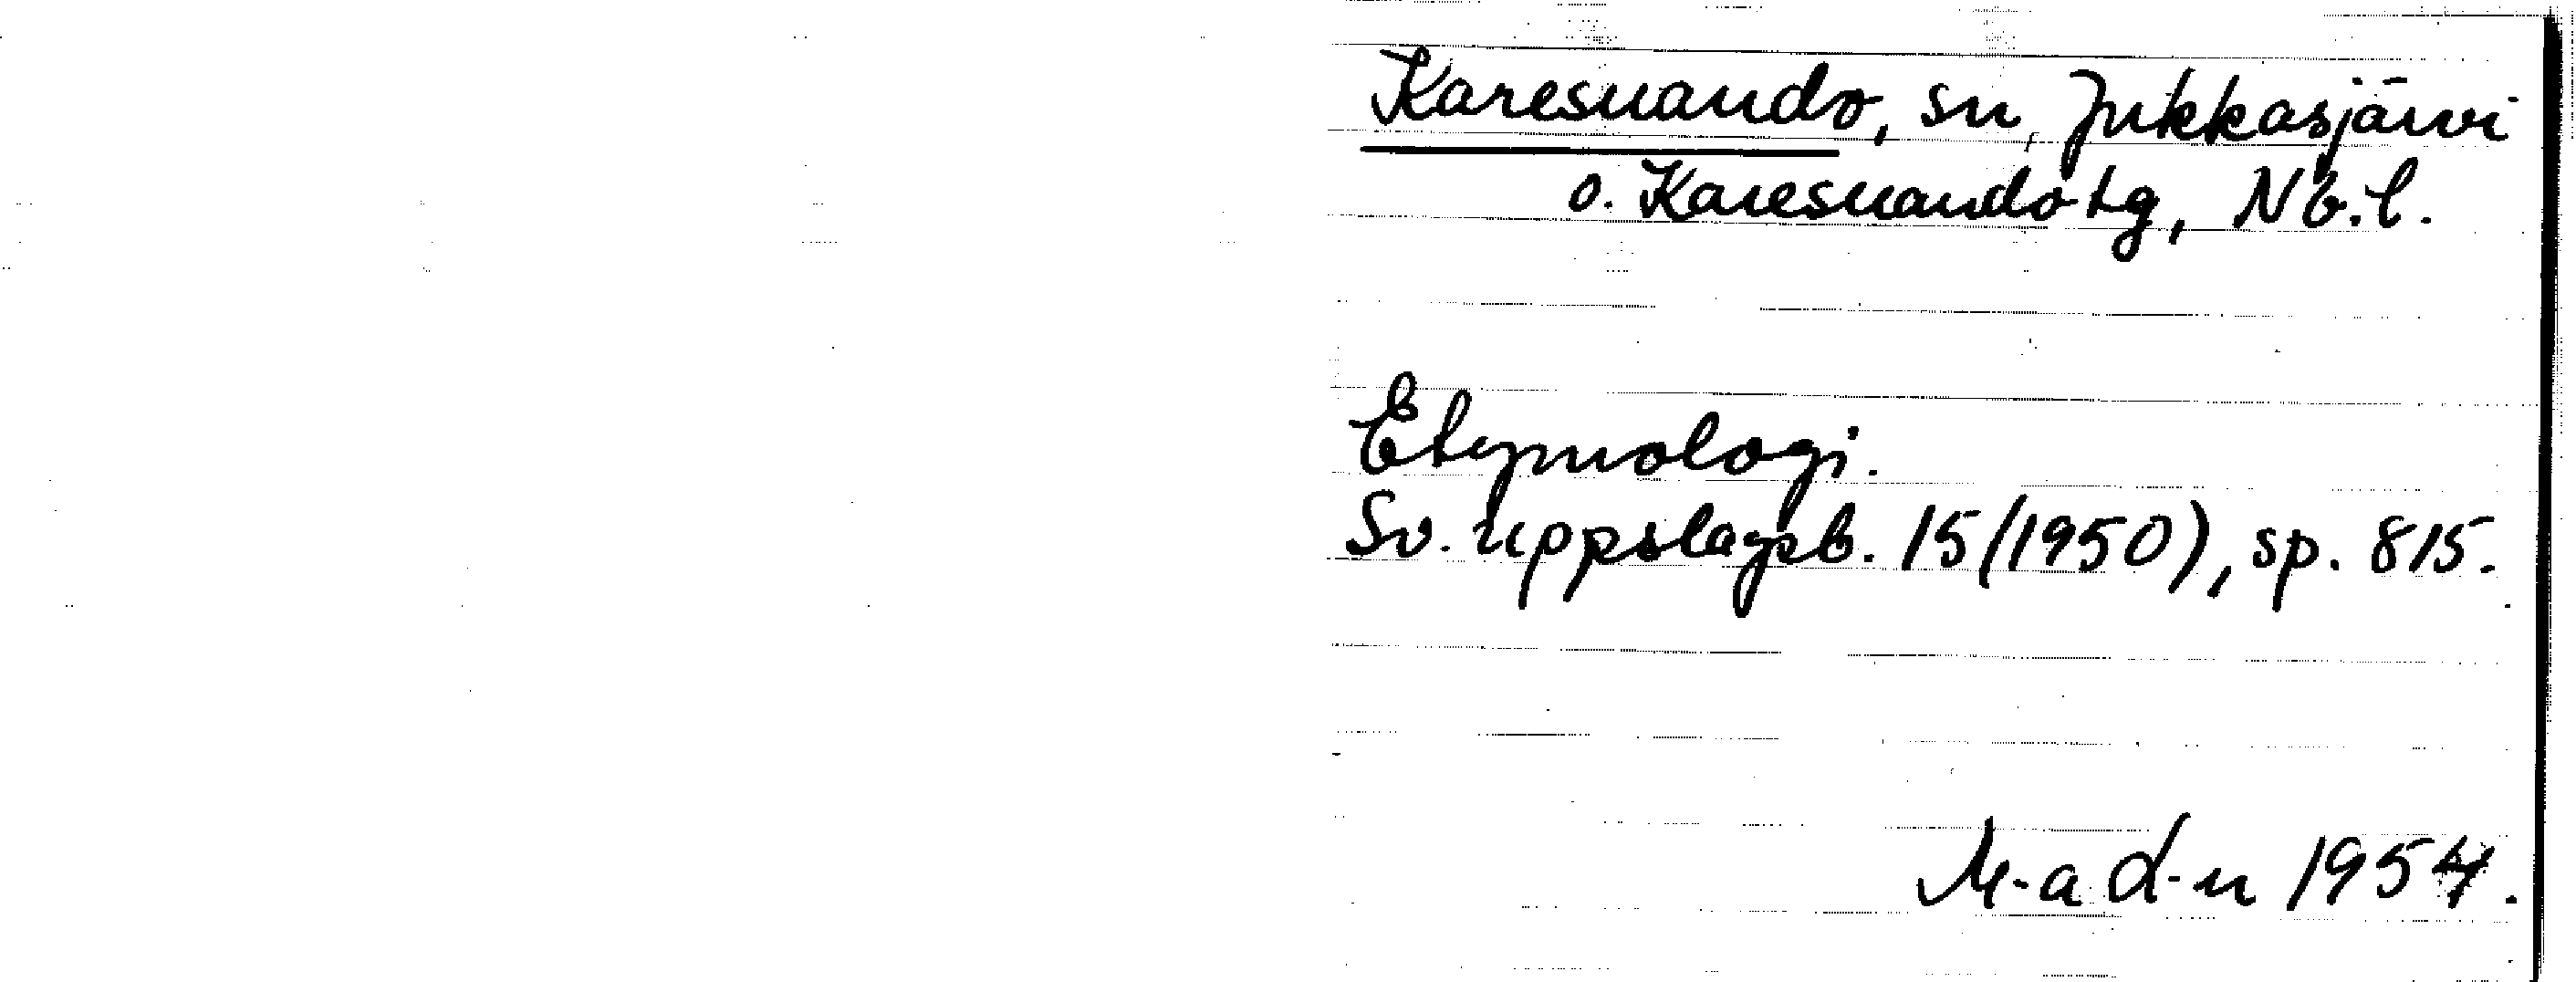 Karesuando, sn, Jukkasjärvi
o. Karesuando tg, Nb.l.
Etymologi.
Sv. uppslagsb. 15 (1950), sp. 815.
M-a d-n 1954.